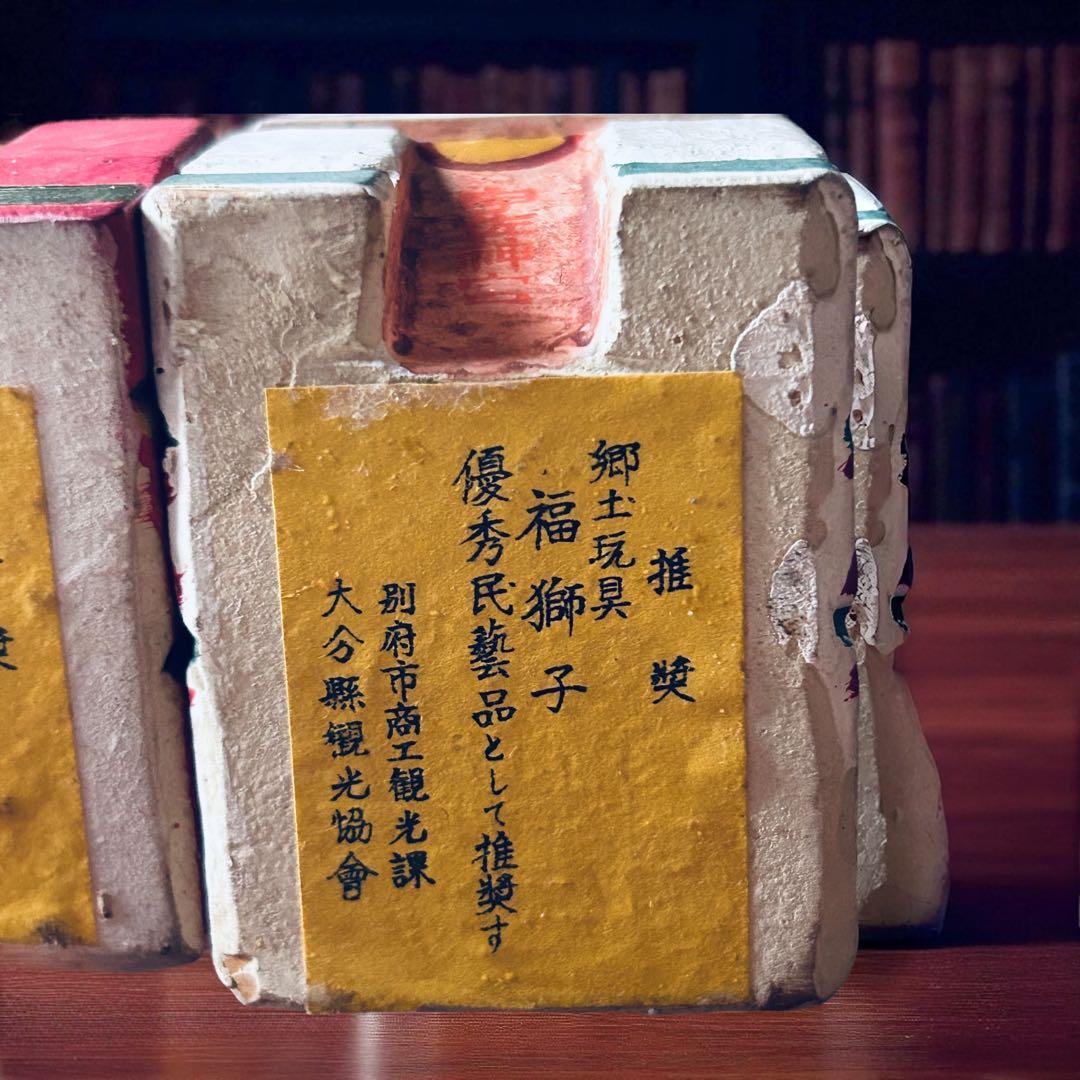 推奬
郷土玩具
福獅子
優秀民藝品として推奬す
別府市商工観光課
大分縣観光協會